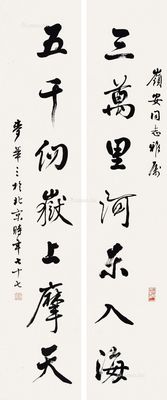 嶺安同志雅屬
三萬里河东入海
五千仞嶽上摩天
華三於北京時年七十七